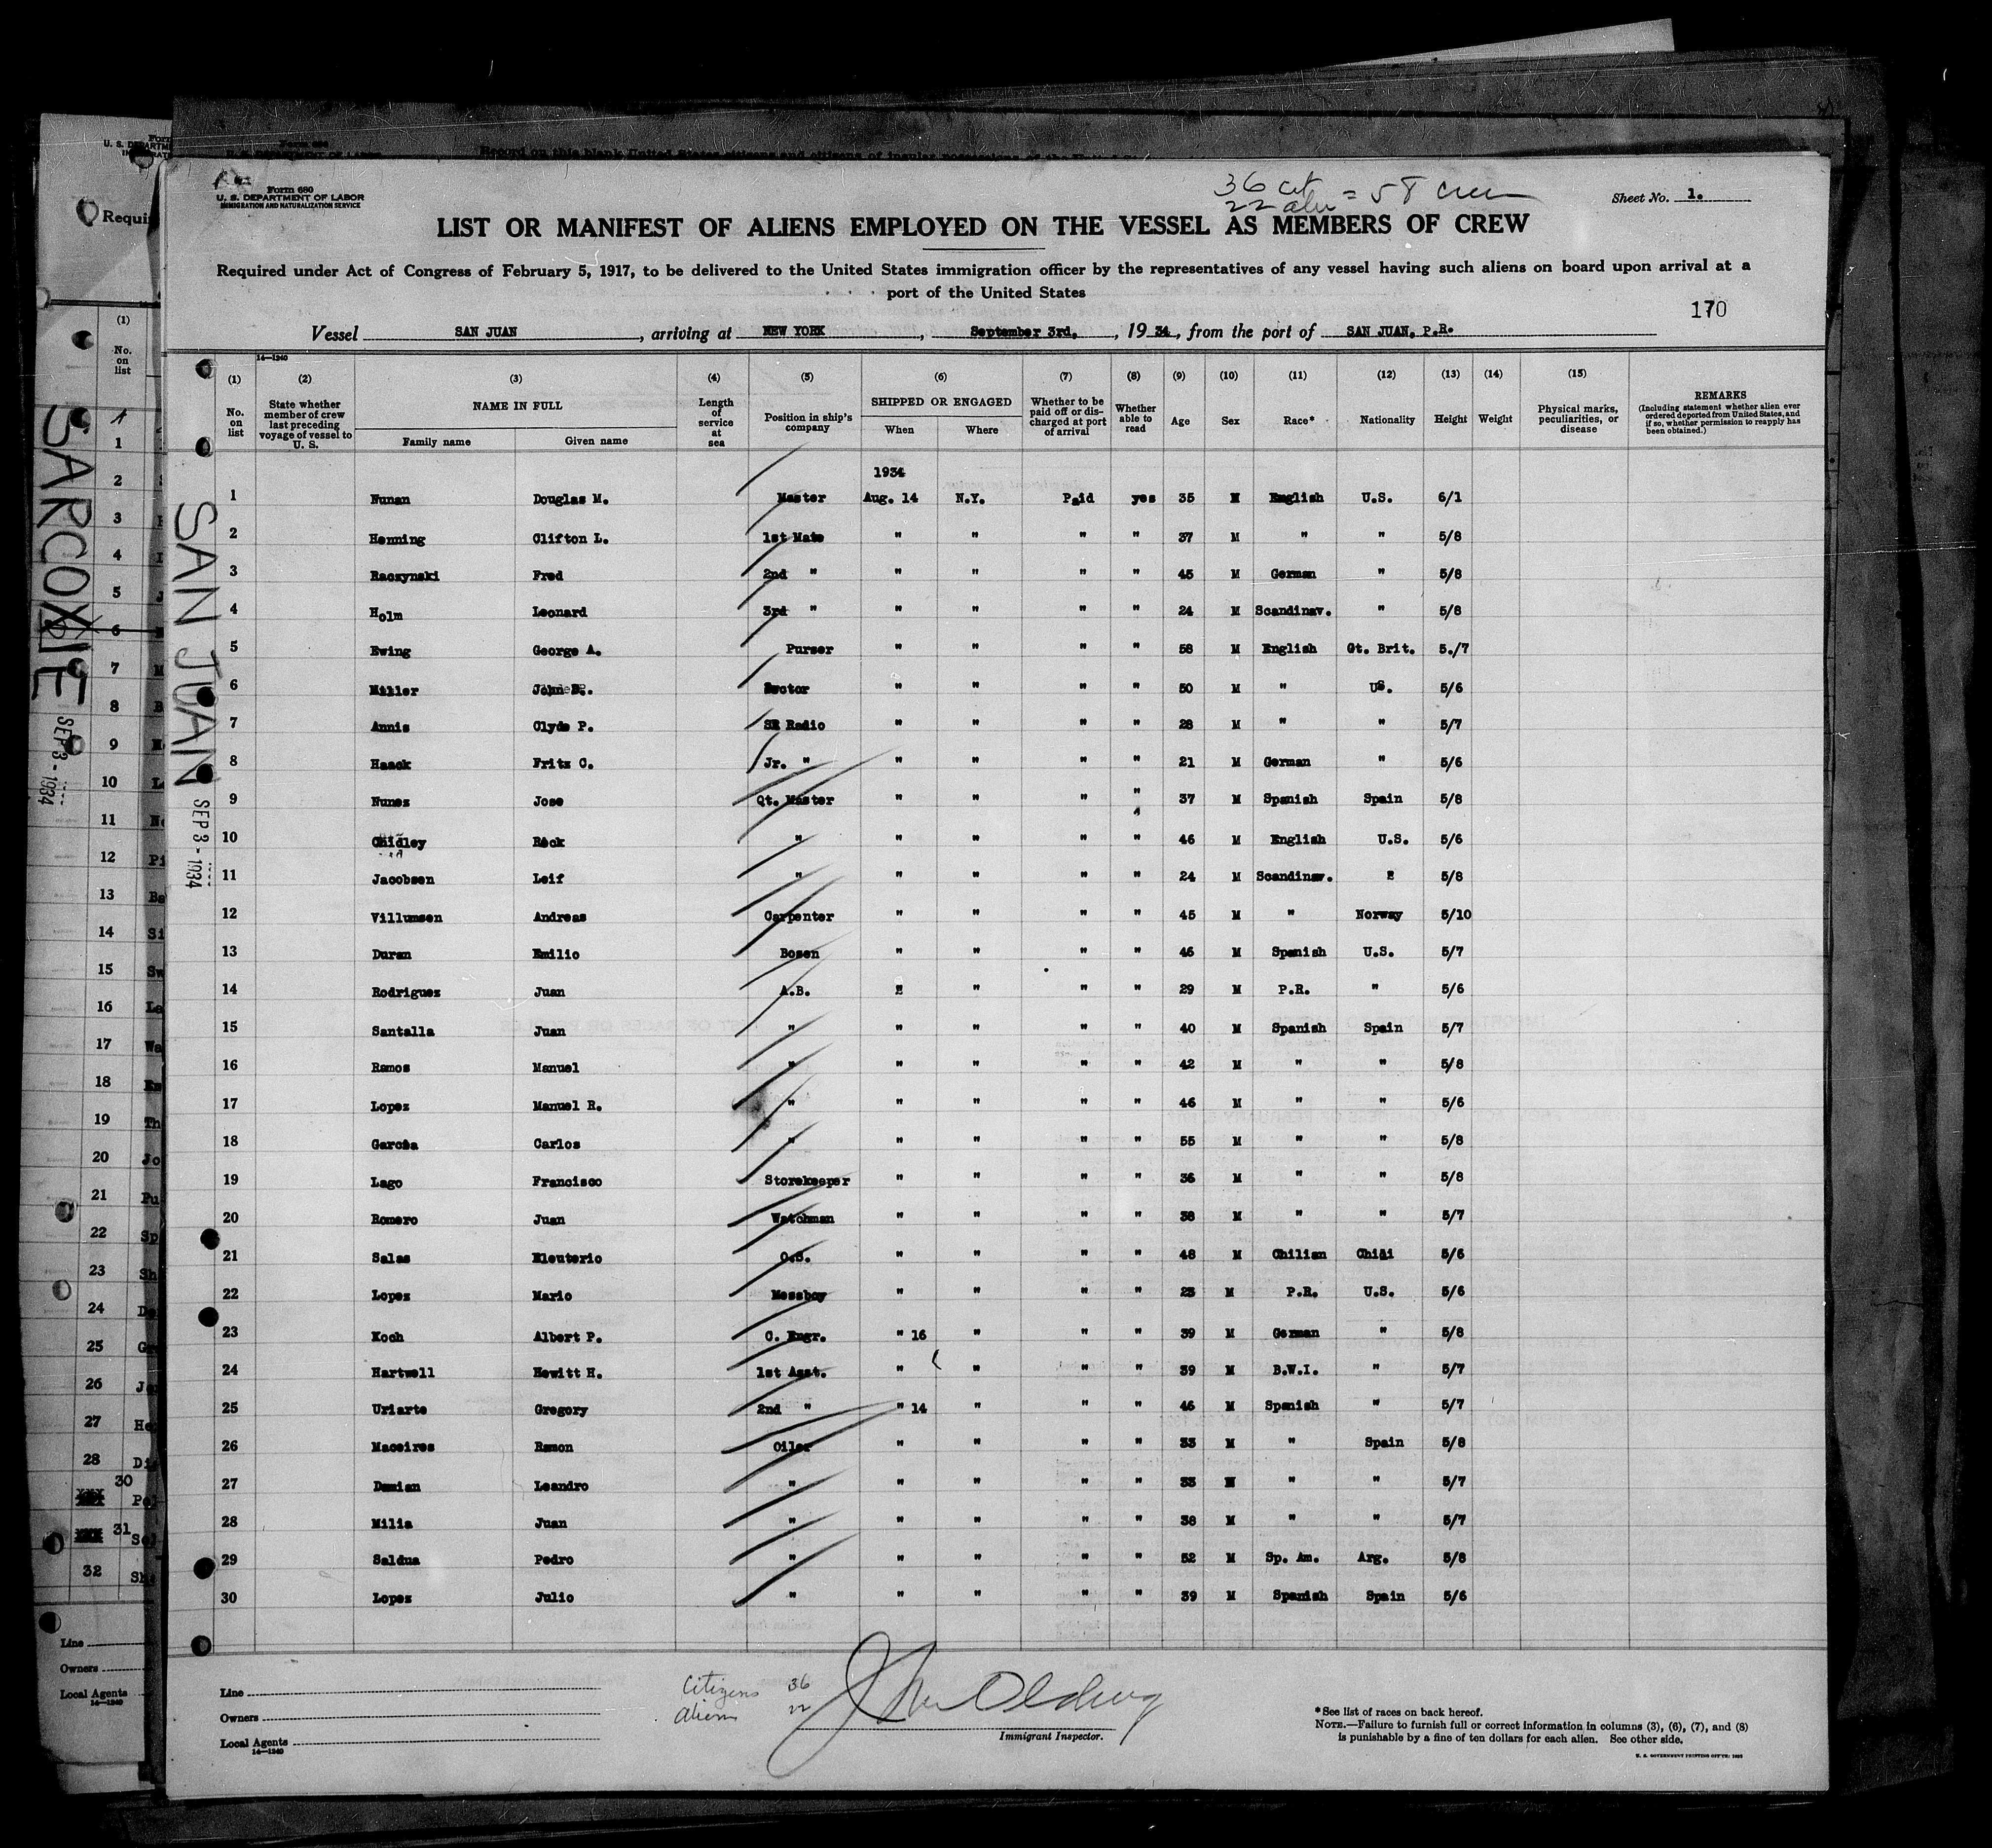 Form 680
U. S. DEPARTMENT OF LABOR
IMMIGRATION AND NATURALIZATION SERVICE
36 cit
22 alien = 58 crew
Sheet No. 1.
LIST OR MANIFEST OF ALIENS EMPLOYED ON THE VESSEL AS MEMBERS OF CREW
Required under Act of Congress of February 5, 1917, to be delivered to the United States immigration officer by the representatives of any vessel having such aliens on board upon arrival at a
port of the United States
170
Vessel SAN JUAN, arriving at NEW YORK, September 3rd, 1934, from the port of SAN JUAN, P.R.
14—1240
(1) (2) (3) (4) (5) (6) (7) (8) (9) (10) (11) (12) (13) (14) (15)
No. on list State whether member of crew last preceding voyage of vessel to U. S. NAME IN FULL Family name Given name Length of service at sea Position in ship's company SHIPPED OR ENGAGED When Where Whether to be paid off or discharged at port of arrival Whether able to read Age Sex Race* Nationality Height Weight Physical marks, peculiarities, or disease REMARKS (Including statement whether alien ever ordered deported from United States, and if so, whether permission to reapply has been obtained.)
1934
1 Nunan Douglas M. Master Aug. 14 N.Y. Paid yes 35 M English U.S. 6/1
2 Henning Clifton L. 1st Mate " " " " 37 M " " 5/8
3 Raczynski Fred 2nd " " " " " 45 M German " 5/8
4 Holm Leonard 3rd " " " " " 24 M Scandinav. " 5/8
5 Ewing George A. Purser " " " " 58 M English Gt. Brit. 5./7
6 Miller John Doctor " " " " 50 M " US. 5/6
7 Annis Clyde P. SR Radio " " " " 28 M " " 5/7
8 Haack Fritz C. Jr. " " " " " 21 M German " 5/6
9 Nunez Jose Qt. Master " " " " 37 M Spanish Spain 5/8
10 Chidley Rock " " " " " 46 M English U.S. 5/6
11 Jacobsen Leif " " " " " 24 M Scandinav. " 5/8
12 Villumsen Andreas Carpenter " " " " 45 M " Norway 5/10
13 Duran Emilio Bosen " " " " 46 M Spanish U.S. 5/7
14 Rodriguez Juan A.B. " " " " 29 M P.R. " 5/6
15 Santalla Juan " " " " " 40 M Spanish Spain 5/7
16 Ramos Manuel " " " " " 42 M " " 5/8
17 Lopez Manuel R. " " " " " 46 M " " 5/6
18 Garcia Carlos " " " " " 55 M " " 5/8
19 Lago Francisco Storekeeper " " " " 36 M " " 5/8
20 Romero Juan Watchman " " " " 38 M " " 5/7
21 Salas Eleuterio O.S. " " " " 48 M Chilian Chili 5/6
22 Lopez Mario Messboy " " " " 23 M P.R. U.S. 5/6
23 Koch Albert P. C. Engr. " 16 " " " 39 M German " 5/8
24 Hartwell Hewitt H. 1st Asst. " " " " 39 M B.W.I. " 5/7
25 Uriarte Gregory 2nd " " 14 " " " 46 M Spanish " 5/7
26 Maceiras Ramon Oiler " " " " 33 M " Spain 5/8
27 Damian Leandro " " " " " 33 M " " 5/7
28 Milia Juan " " " " " 38 M " " 5/7
29 Saldua Pedro " " " " " 52 M Sp. Am. Arg. 5/8
30 Lopez Julio " " " " " 39 M Spanish Spain 5/6
Line
Owners
Local Agents
14—1240
Citizens 36
aliens 22
Immigrant Inspector.
*See list of races on back hereof.
NOTE.—Failure to furnish full or correct information in columns (3), (6), (7), and (8)
is punishable by a fine of ten dollars for each alien. See other side.
SAN JUAN
SEP 3 - 1934
SARCOXIE
SEP 3 - 1934